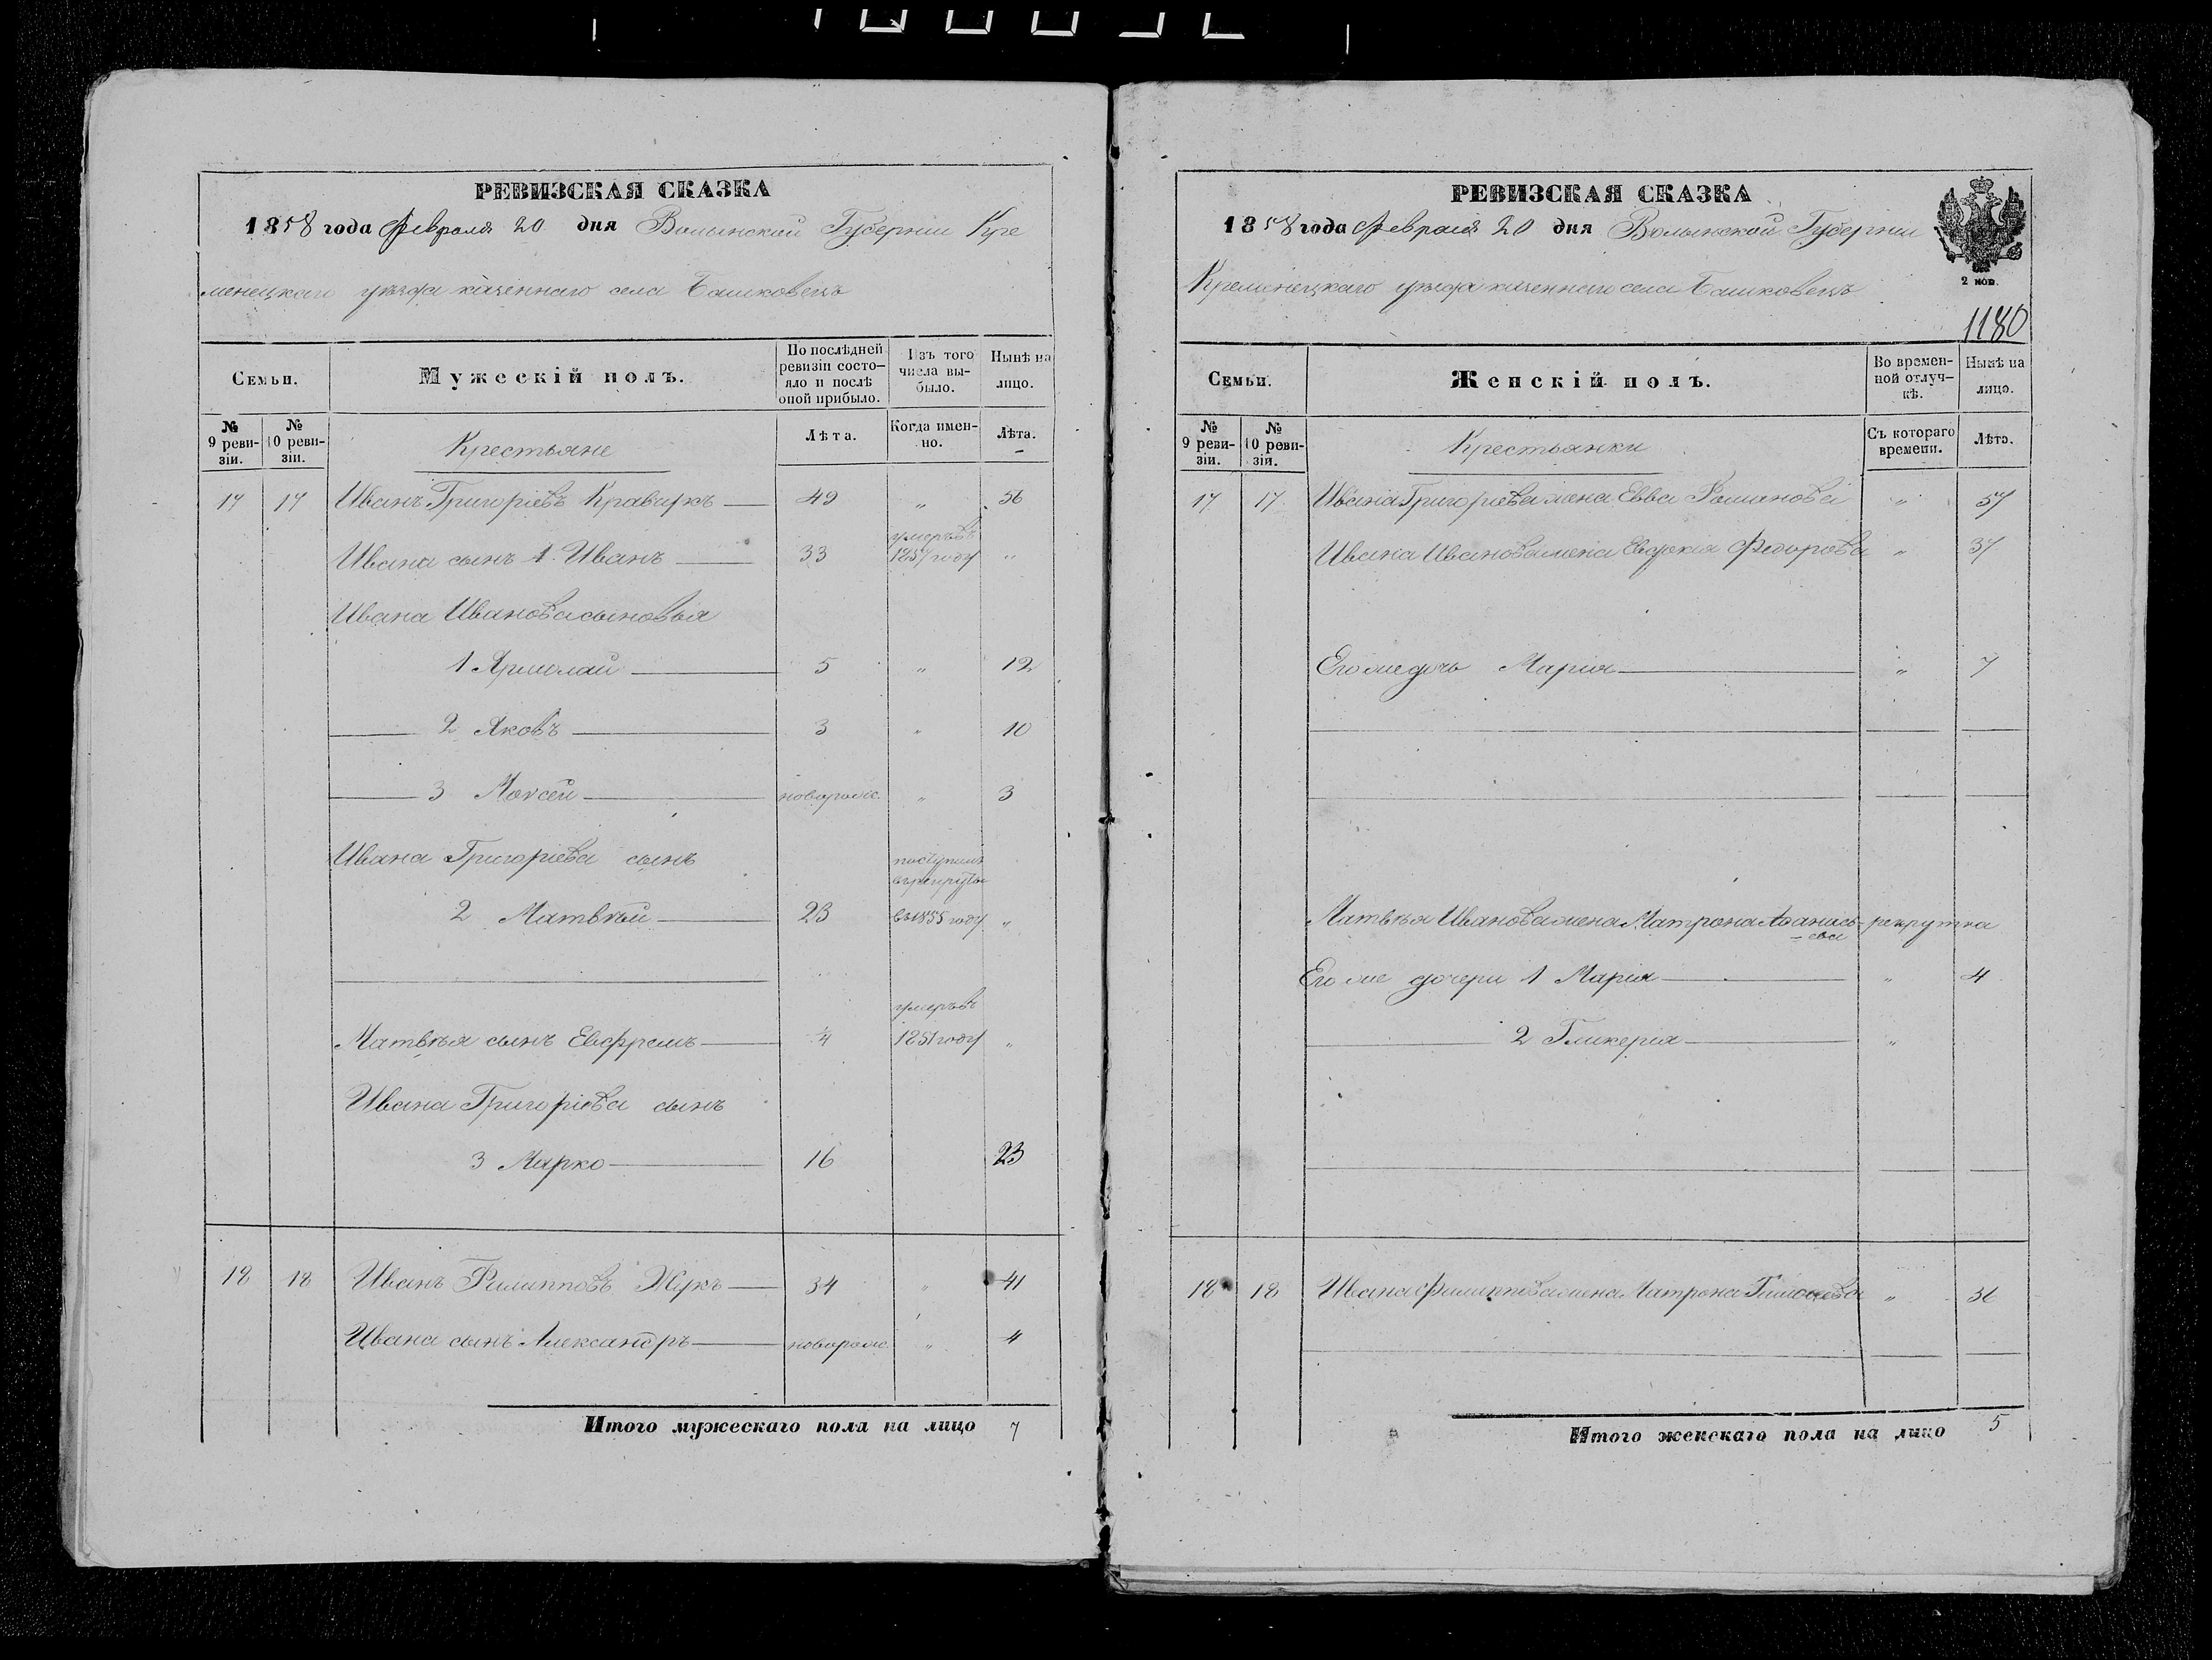 РЕВИЗСКАЯ СКАЗКА
1858 года Февраля 20 дня Волынской Губернiи Кре
менецкаго уѣзда казеннаго села Башковецъ
Семьи.
Мужескiй полъ.
По послѣдней ревизiи состо-яло и послѣ оной прибыло.
Изъ того числа вы-было.
Нынѣ на лицо.
№ 9 реви-зiи.
№ 10 реви-зiи.
Крестьяне
Лѣта.
Когда имен-но.
Лѣта.
17 17 Иванъ Григорiевъ Кравчукъ 49 " 56
умеръ въ
Ивана сынъ 1. Иванъ 33 1857 году "
Ивана Иванова сыновья
1 Ярмолай 5 " 12
2 Яковъ 3 " 10
3 Моѵсей новорож. " 3
Ивана Григорiева сынъ поступилъ
въ рекруты
2 Матвѣй 23 въ 1855 году "
умеръ въ
Матвѣя сынъ Евфремъ 4 1851 году "
Ивана Григорiева сынъ
3 Марко 16 23
18 18 Иванъ Филипповъ Жукъ 34 " 41
Ивана сынъ Александръ новорож. " 4
Итого мужескаго пола на лицо 7
РЕВИЗСКАЯ СКАЗКА
1858 года Февраля 20 дня Волынской Губернiи
Кременецкаго уѣзда казеннаго села Башковецъ
2 коп.
1180
Семьи.
Женскiй полъ.
Во времен-ной отлуч-кѣ.
Нынѣ на лицо.
№ 9 реви-зiи.
№ 10 реви-зiи.
Крестьянки
Съ котораго времени.
Лѣта.
17 17 Ивана Григорiева жена Евва Романова " 57
Ивана Иванова жена Евдокiя Федорова " 37
Его же дочь Марiя " 7
Матвѣя Иванова жена Матрона Афанась-ева рекрутка
Его же дочери 1 Марiя " 4
2 Гликерiя "
18 18 Ивана Филиппова жена Матрона " 36
Итого женскаго пола на лицо 5